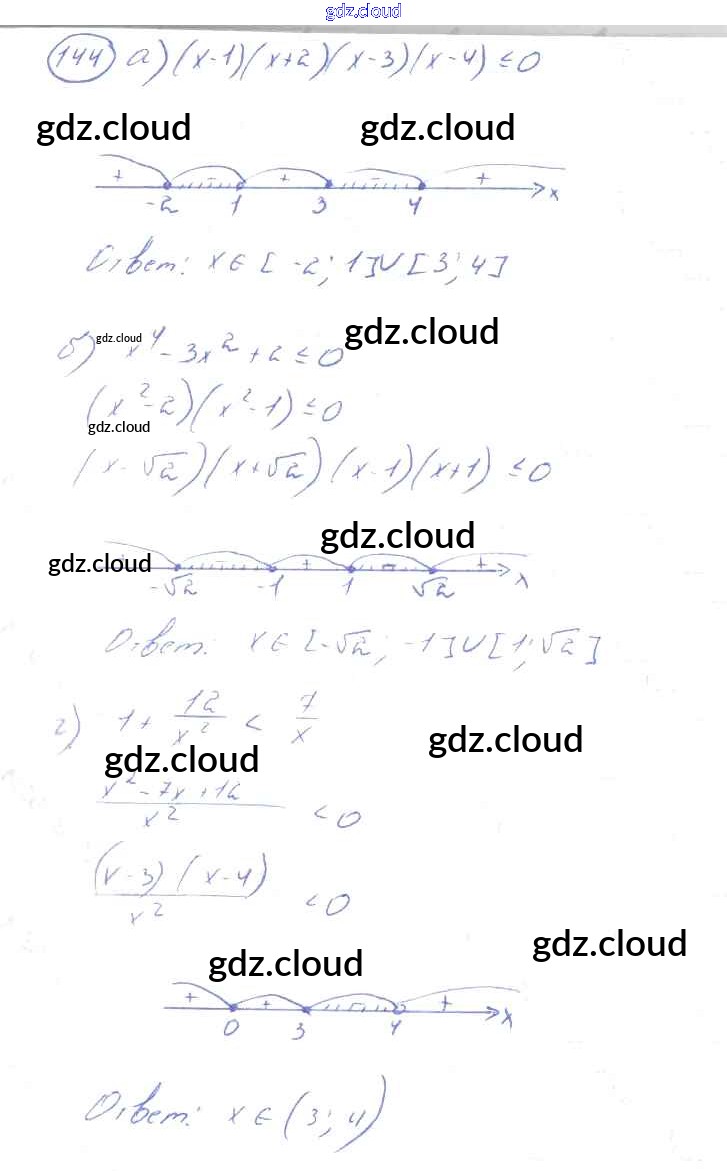 gdz.cloud
144 а) (x-1)(x+2)(x-3)(x-4) ≤ 0
gdz.cloud gdz.cloud
+ - + - +
-2 1 3 4 x
Ответ: x ∈ [-2; 1] ∪ [3; 4]
gdz.cloud
gdz.cloud
б) x⁴ - 3x² + 2 ≤ 0
(x² - 2)(x² - 1) ≤ 0
gdz.cloud
(x - √2)(x + √2)(x - 1)(x + 1) ≤ 0
gdz.cloud
gdz.cloud
+ - + - +
-√2 -1 1 √2 x
Ответ: x ∈ [-√2; -1] ∪ [1; √2]
г) 1 + 12/x² < 7/x
gdz.cloud
gdz.cloud
(x² - 7x + 12)/x² < 0
((x - 3)(x - 4))/x² < 0
gdz.cloud
gdz.cloud
+ + - +
0 3 4 x
Ответ: x ∈ (3; 4)